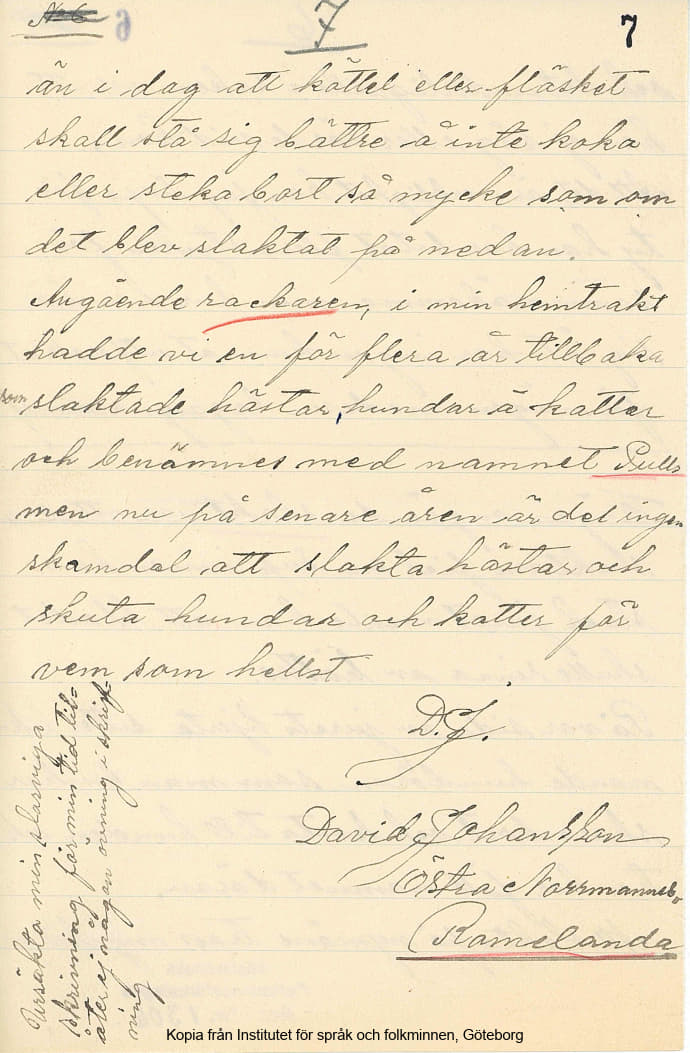 No 6
7
7
än i dag att köttet eller fläsket
skall stå sig bättre å inte koka
eller steka bort så mycke som om
det blev slaktat på nedan.
Angående rackaren, i min hemtrakt
hadde vi en för flera år tillbaka
som slaktade hästar, hundar å katter
och benämnes med namnet Rulls
men nu på senare åren är det ingen
skamdal att slakta hästar och
skuta hundar och katter för
vem som hellst
D.J.
David Johansson
Östra Norrmannebo
Romelanda
Ursäkta min slarviga
skrivning för min tid till-
åter ej någon övning i skrif-
ning
Kopia från Institutet för språk och folkminnen, Göteborg